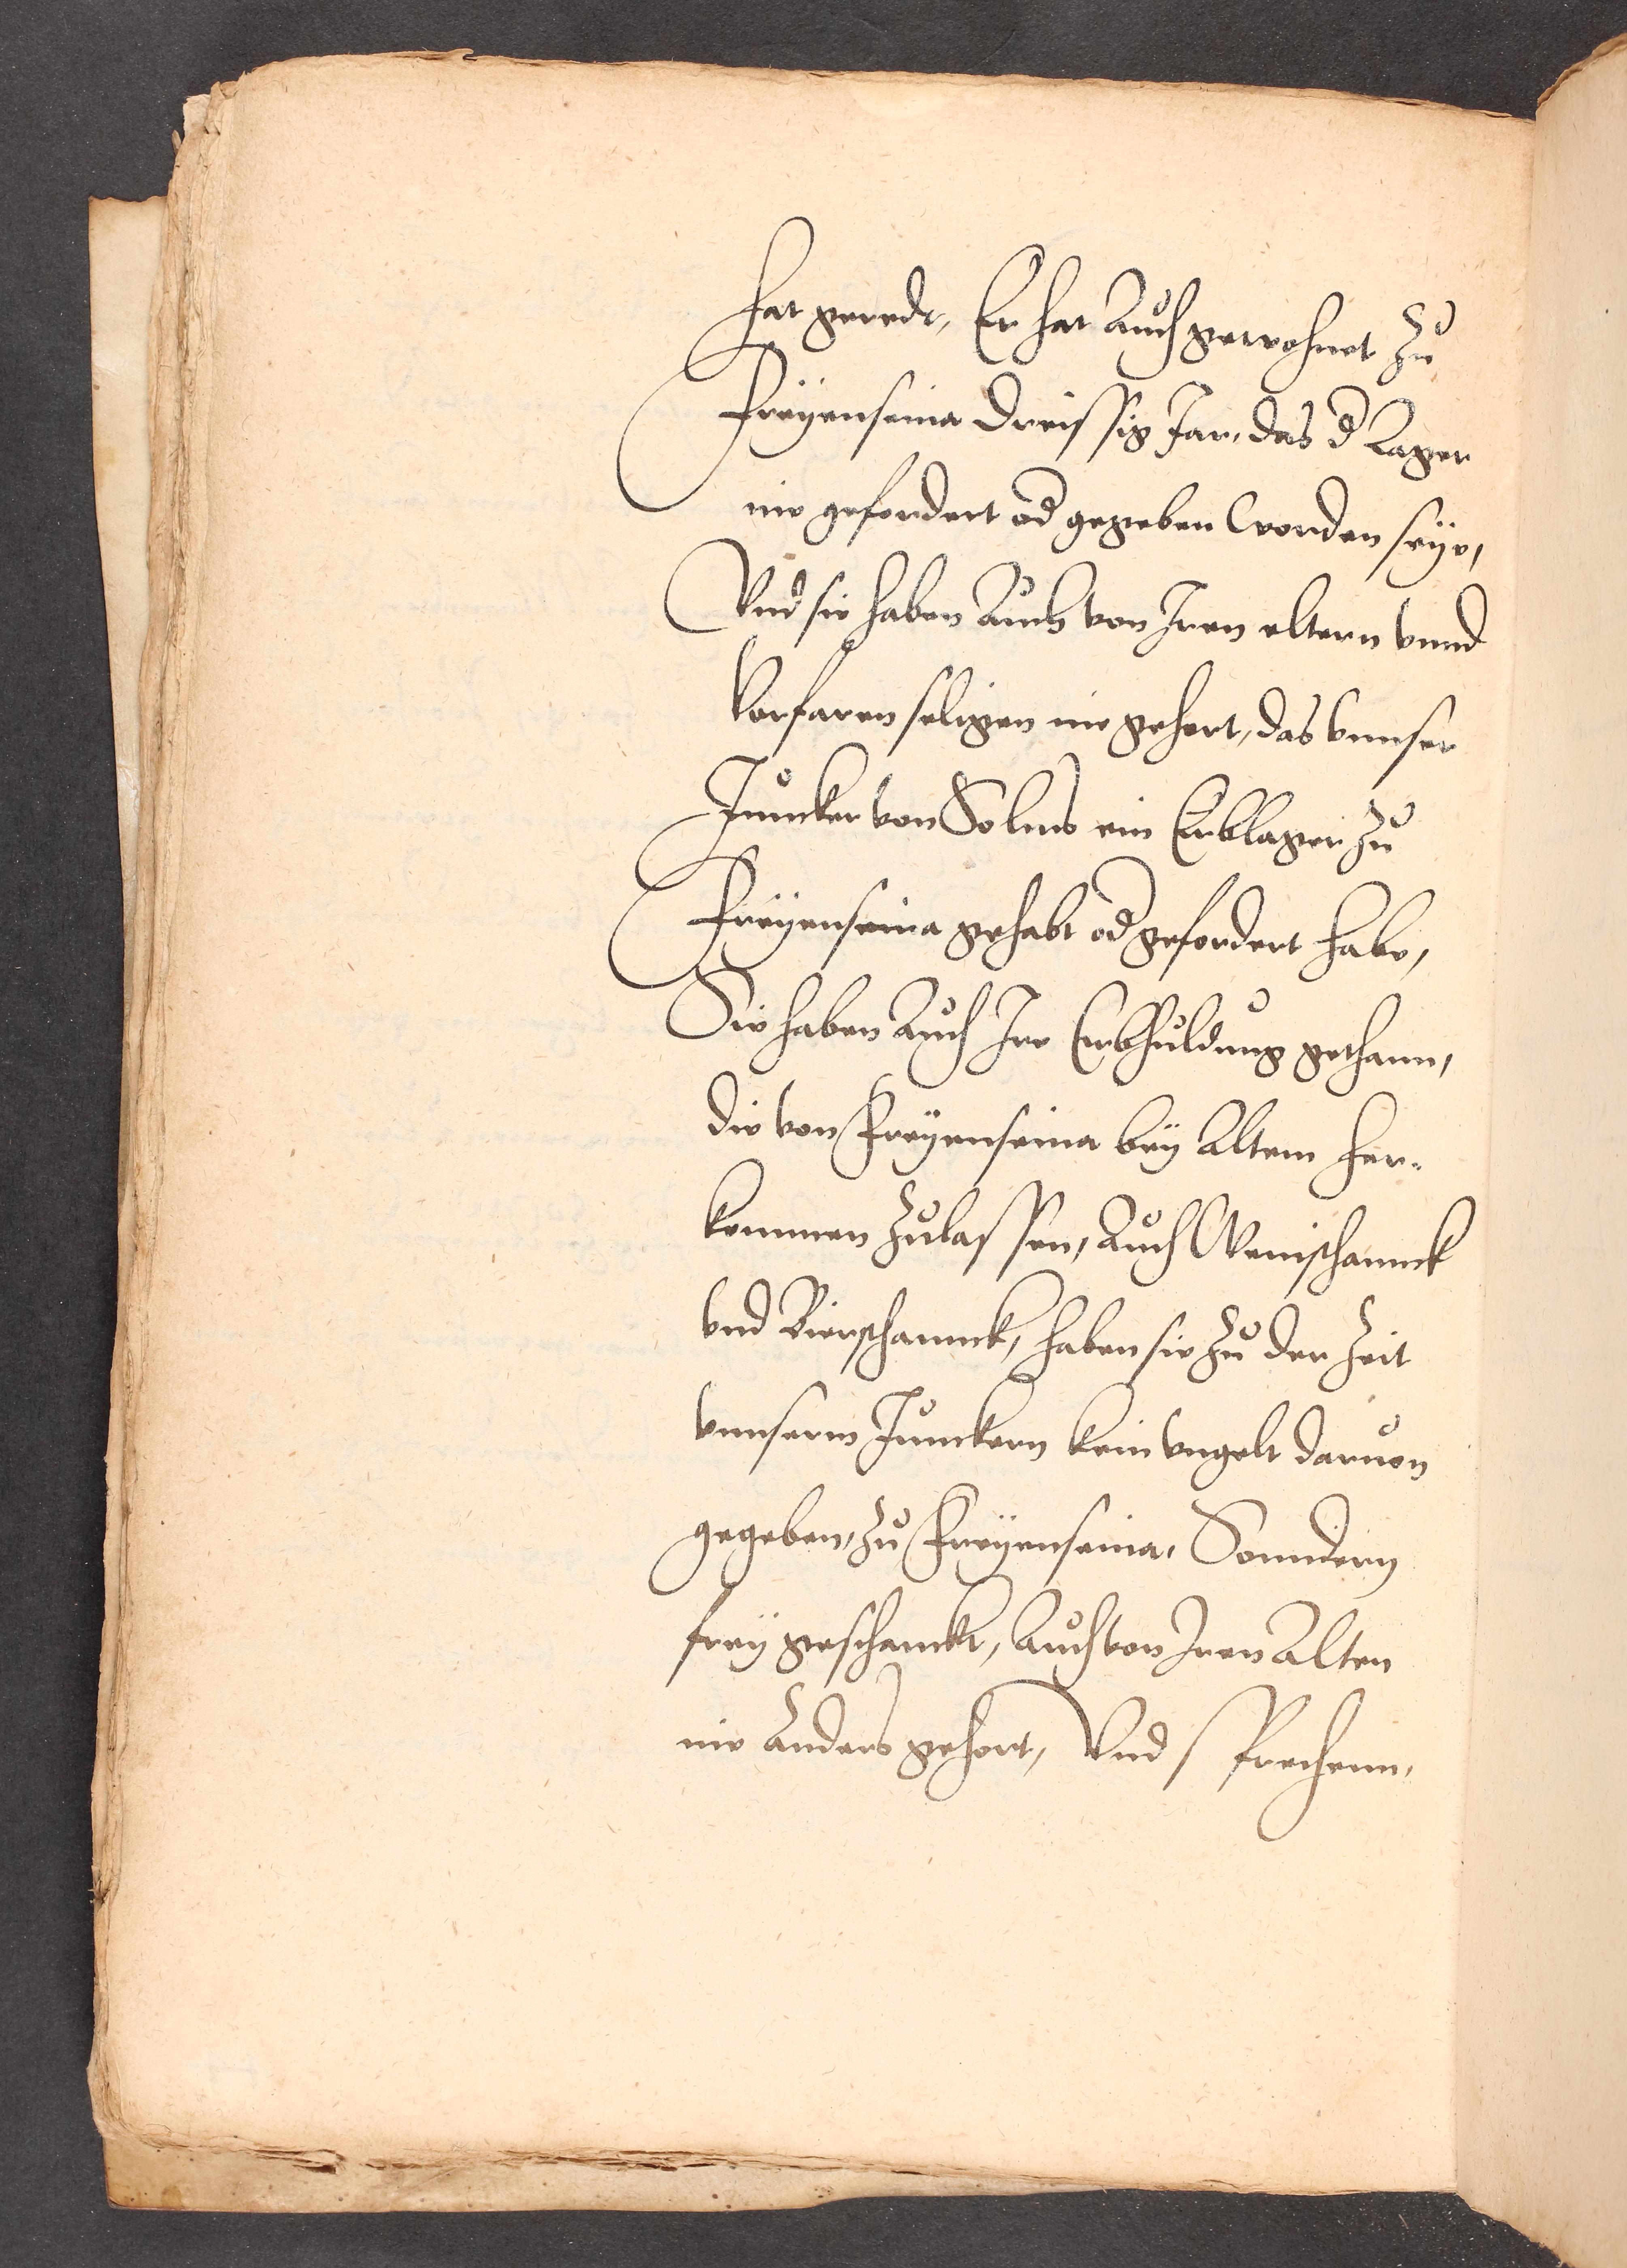 hat geredt, Er hat Auch gewohnet zu
Freyenseina Dreissig Jar, das d Lager
nie gefordert od gegeben worden seye,
Vnd sie haben Auch von Iren eltern vnnd
Vorfaren seligen nie gehort, das vnnser
Junckher von Solms ein Erblager zu
Freyenseina gehabt od gefordert habe,
Sie haben Auch Ire Erbhuldung gethann,
die von Freyenseina bey Altem her-
kommen zulassen, Auch Weinschannck
vnd Bierschannck, haben sie zu der Zeit
vnnserm Junckern kein vngelt daruon
gegeben, zu Freyenseina, Sonndern
frey geschanckt, Auch von Iren Alten
nie Anders gehort, Vnd sprechenn,